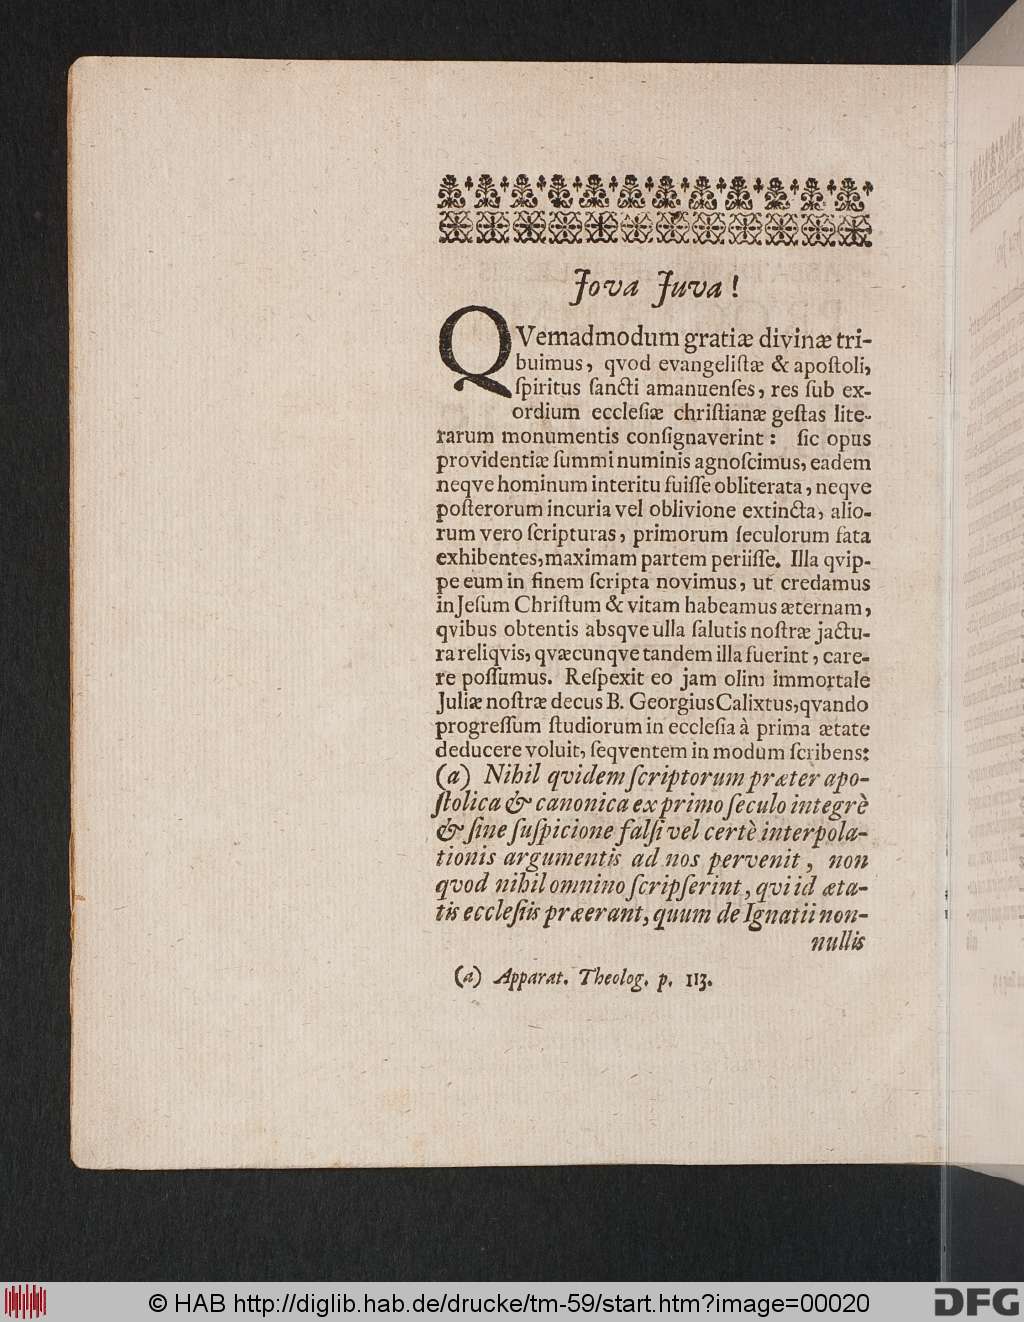 Jova Juva!
QVemadmodum gratiæ divinæ tri-
buimus, qvod evangeliſtæ & apoſtoli,
ſpiritus ſancti amanuenſes, res ſub ex-
ordium eccleſiæ chriſtianæ geſtas lite-
rarum monumentis conſignaverint: ſic opus
providentiæ ſummi numinis agnoſcimus, eadem
neqve hominum interitu fuiſſe obliterata, neqve
poſterorum incuria vel oblivione extincta, alio-
rum vero ſcripturas, primorum ſeculorum fata
exhibentes, maximam partem periiſſe. Illa qvip-
pe eum in finem ſcripta novimus, ut credamus
in Jeſum Chriſtum & vitam habeamus æternam,
qvibus obtentis absqve ulla ſalutis noſtræ jactu-
ra reliqvis, qvæcunqve tandem illa fuerint, care-
re poſſumus. Reſpexit eo jam olim immortale
Juliæ noſtræ decus B. Georgius Calixtus, qvando
progreſſum ſtudiorum in eccleſia à prima ætate
deducere voluit, ſeqventem in modum ſcribens:
(a) Nihil qvidem ſcriptorum præter apo-
ſtolica & canonica ex primo ſeculo integrè
& ſine ſuſpicione falſi vel certè interpola-
tionis argumentis ad nos pervenit, non
qvod nihil omnino ſcripſerint, qvi id æta-
tis eccleſiis præerant, quum de Ignatii non-
nullis
(a) Apparat. Theolog. p. 113.
© HAB http://diglib.hab.de/drucke/tm-59/start.htm?image=00020
DFG